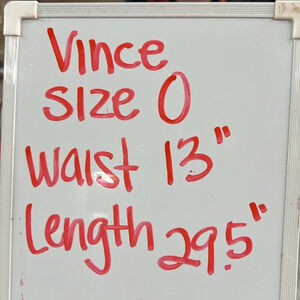 Vince
size 0
waist 13"
Length 29.5"